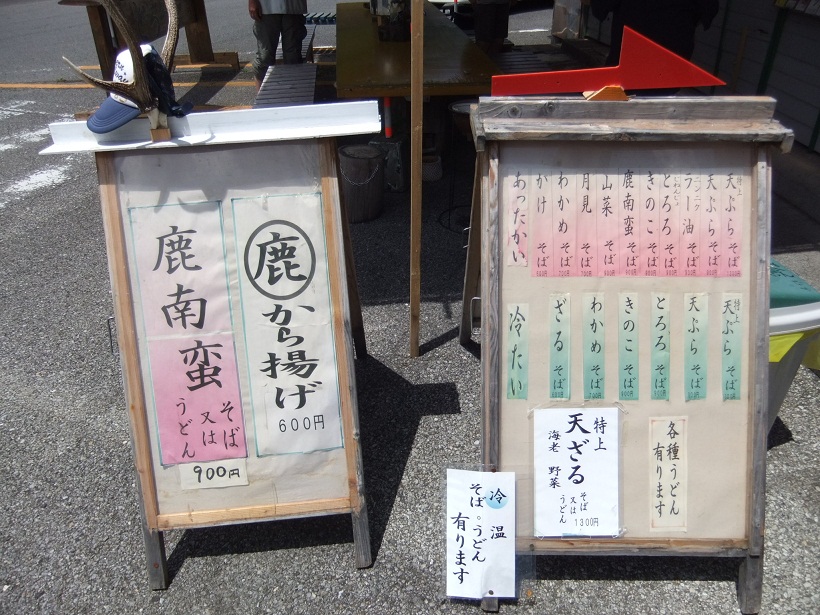 鹿から揚げ
600円
鹿南蛮
そば
又は
うどん
900円
特上
天ぷらそば
天ぷらそば
ニンニク
ラー油そば
とろろそば
きのこそば
鹿南蛮そば
山菜そば
月見そば
わかめそば
かけそば
あったかい
特上
天ぷらそば
天ぷらそば
とろろそば
きのこそば
わかめそば
ざるそば
冷たい
各種うどん
有ります
特上
天ざる
海老 野菜
そば
又は
うどん
1300円
冷 温
そば。うどん
有ります